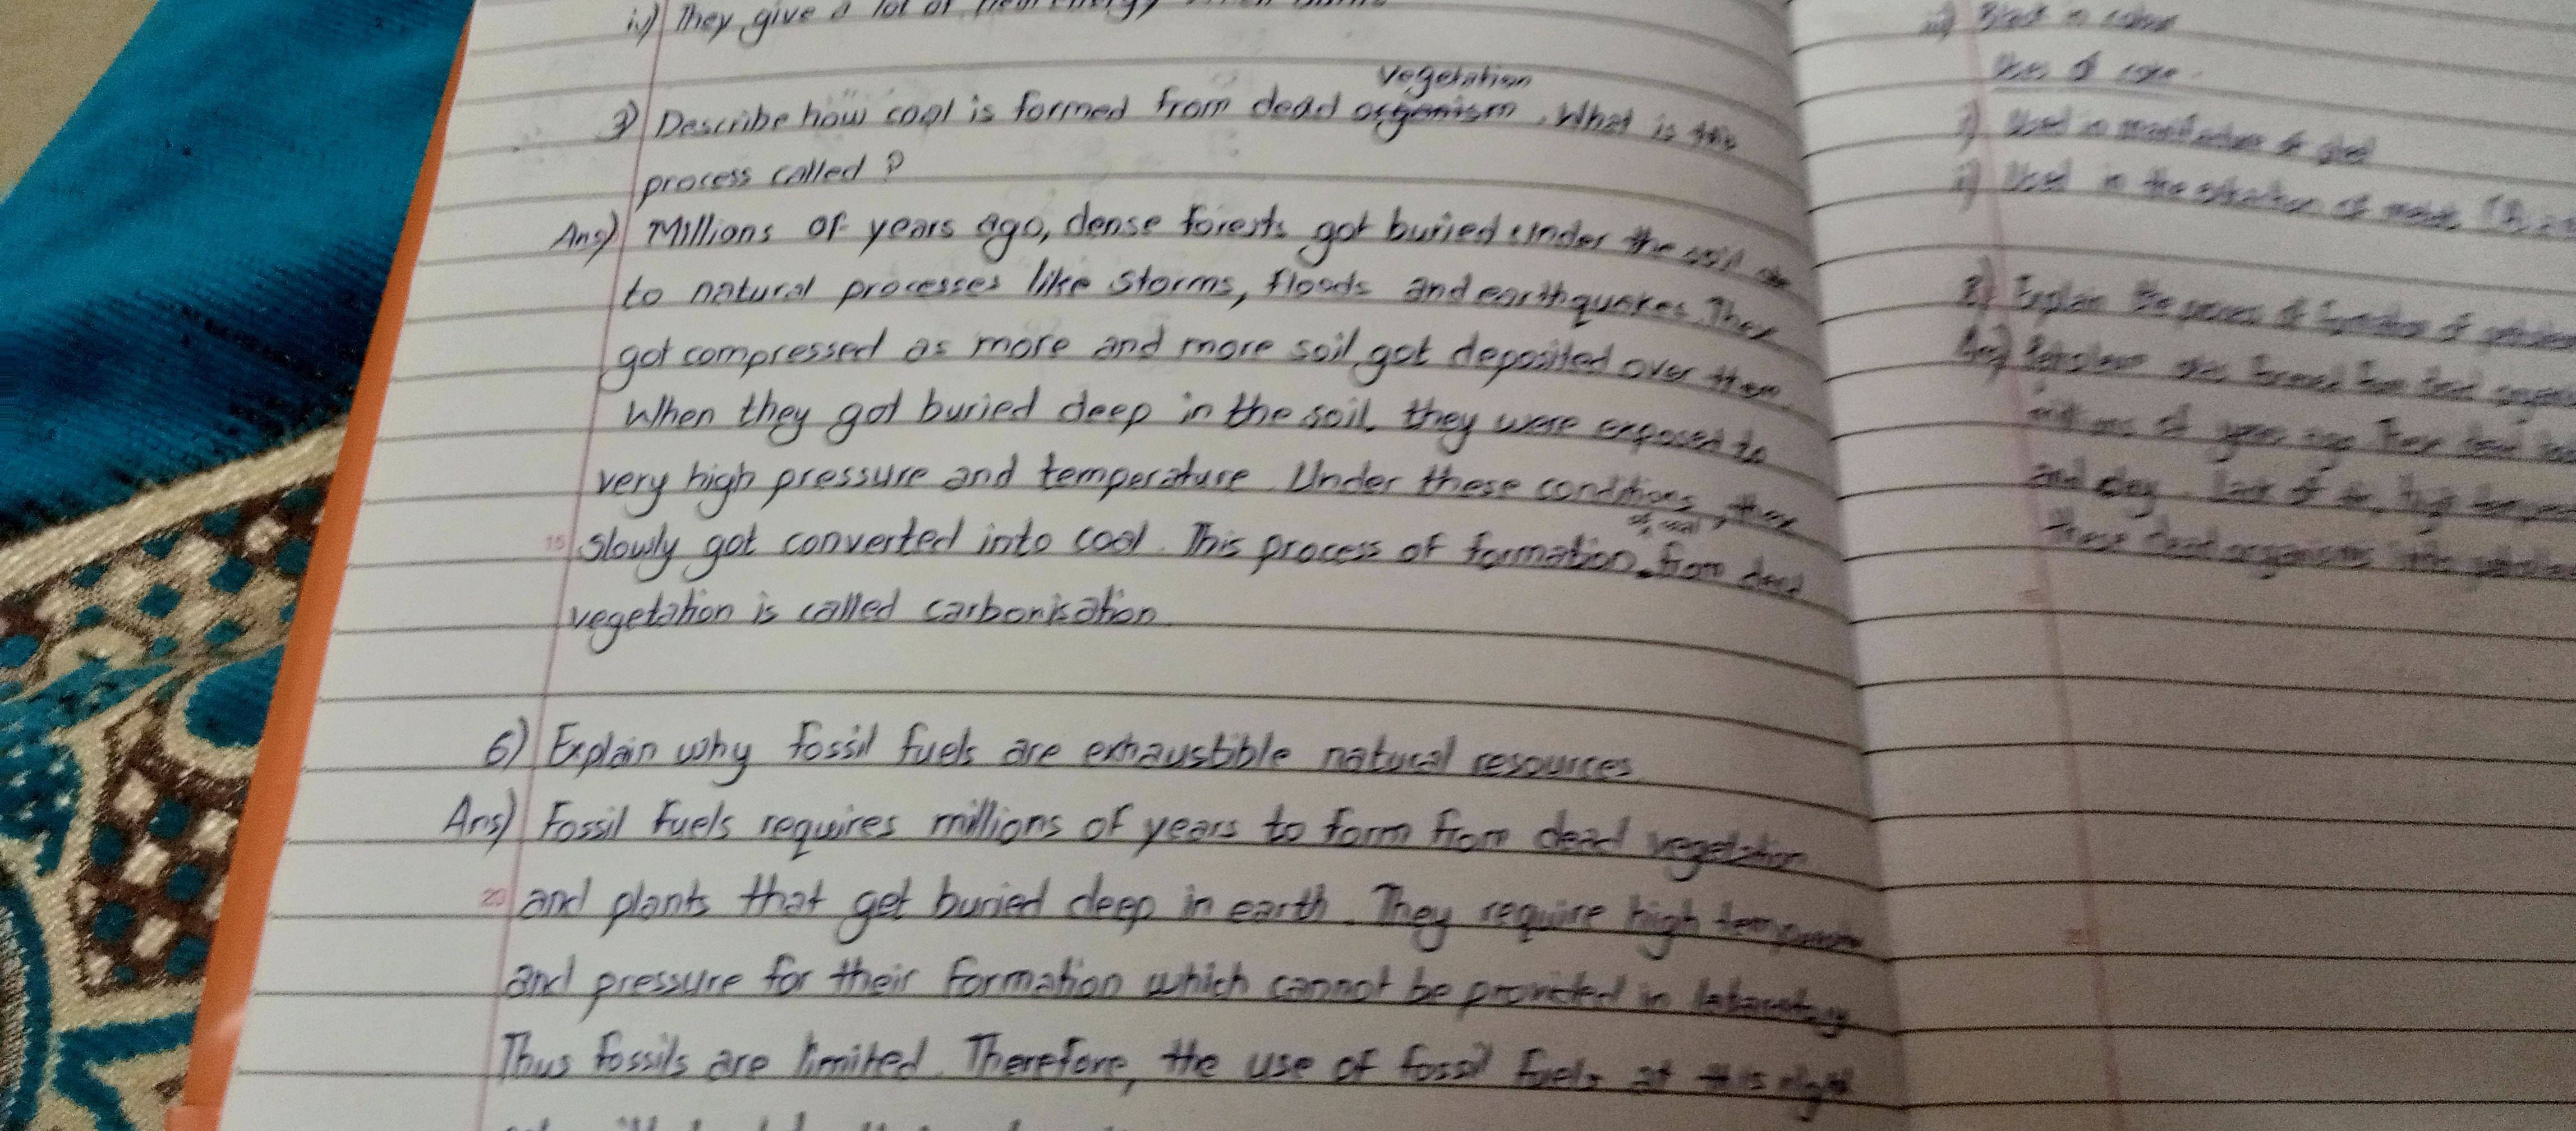 iv) They give a lot of
3) Describe how coal is formed from dead vegetation. What is this
process called?
Ans) Millions of years ago, dense forests got buried under the soil due
to natural processes like storms, floods and earthquakes. They
got compressed as more and more soil got deposited over them.
When they got buried deep in the soil, they were exposed to
very high pressure and temperature. Under these conditions, they
15
slowly got converted into coal. This process of formation of coal from dead
vegetation is called carbonisation.
6) Explain why fossil fuels are exhaustible natural resources.
Ans) Fossil fuels requires millions of years to form from dead vegetation
20
and plants that get buried deep in earth. They require high
and pressure for their formation which cannot be provided in
Thus fossils are limited. Therefore, the use of fossil fuels at this
iii) Black in colour
Uses of coke.
i) Used in manufacture of steel
ii) Used in the extraction of metals
8) Explain the process of formation of
Ans) Petroleum was formed from dead
millions of years ago. These dead
and clay. Lack of air, high
these dead organisms into